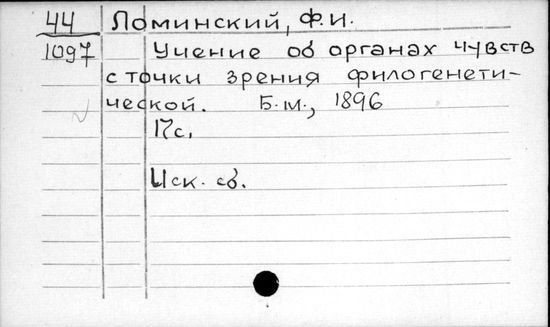 44 Ломинский, Ф.И.
1097 Учение об органах чувств
с точки зрения филогенети-
ческой. Б.м., 1896
17с.
Иск. сб.